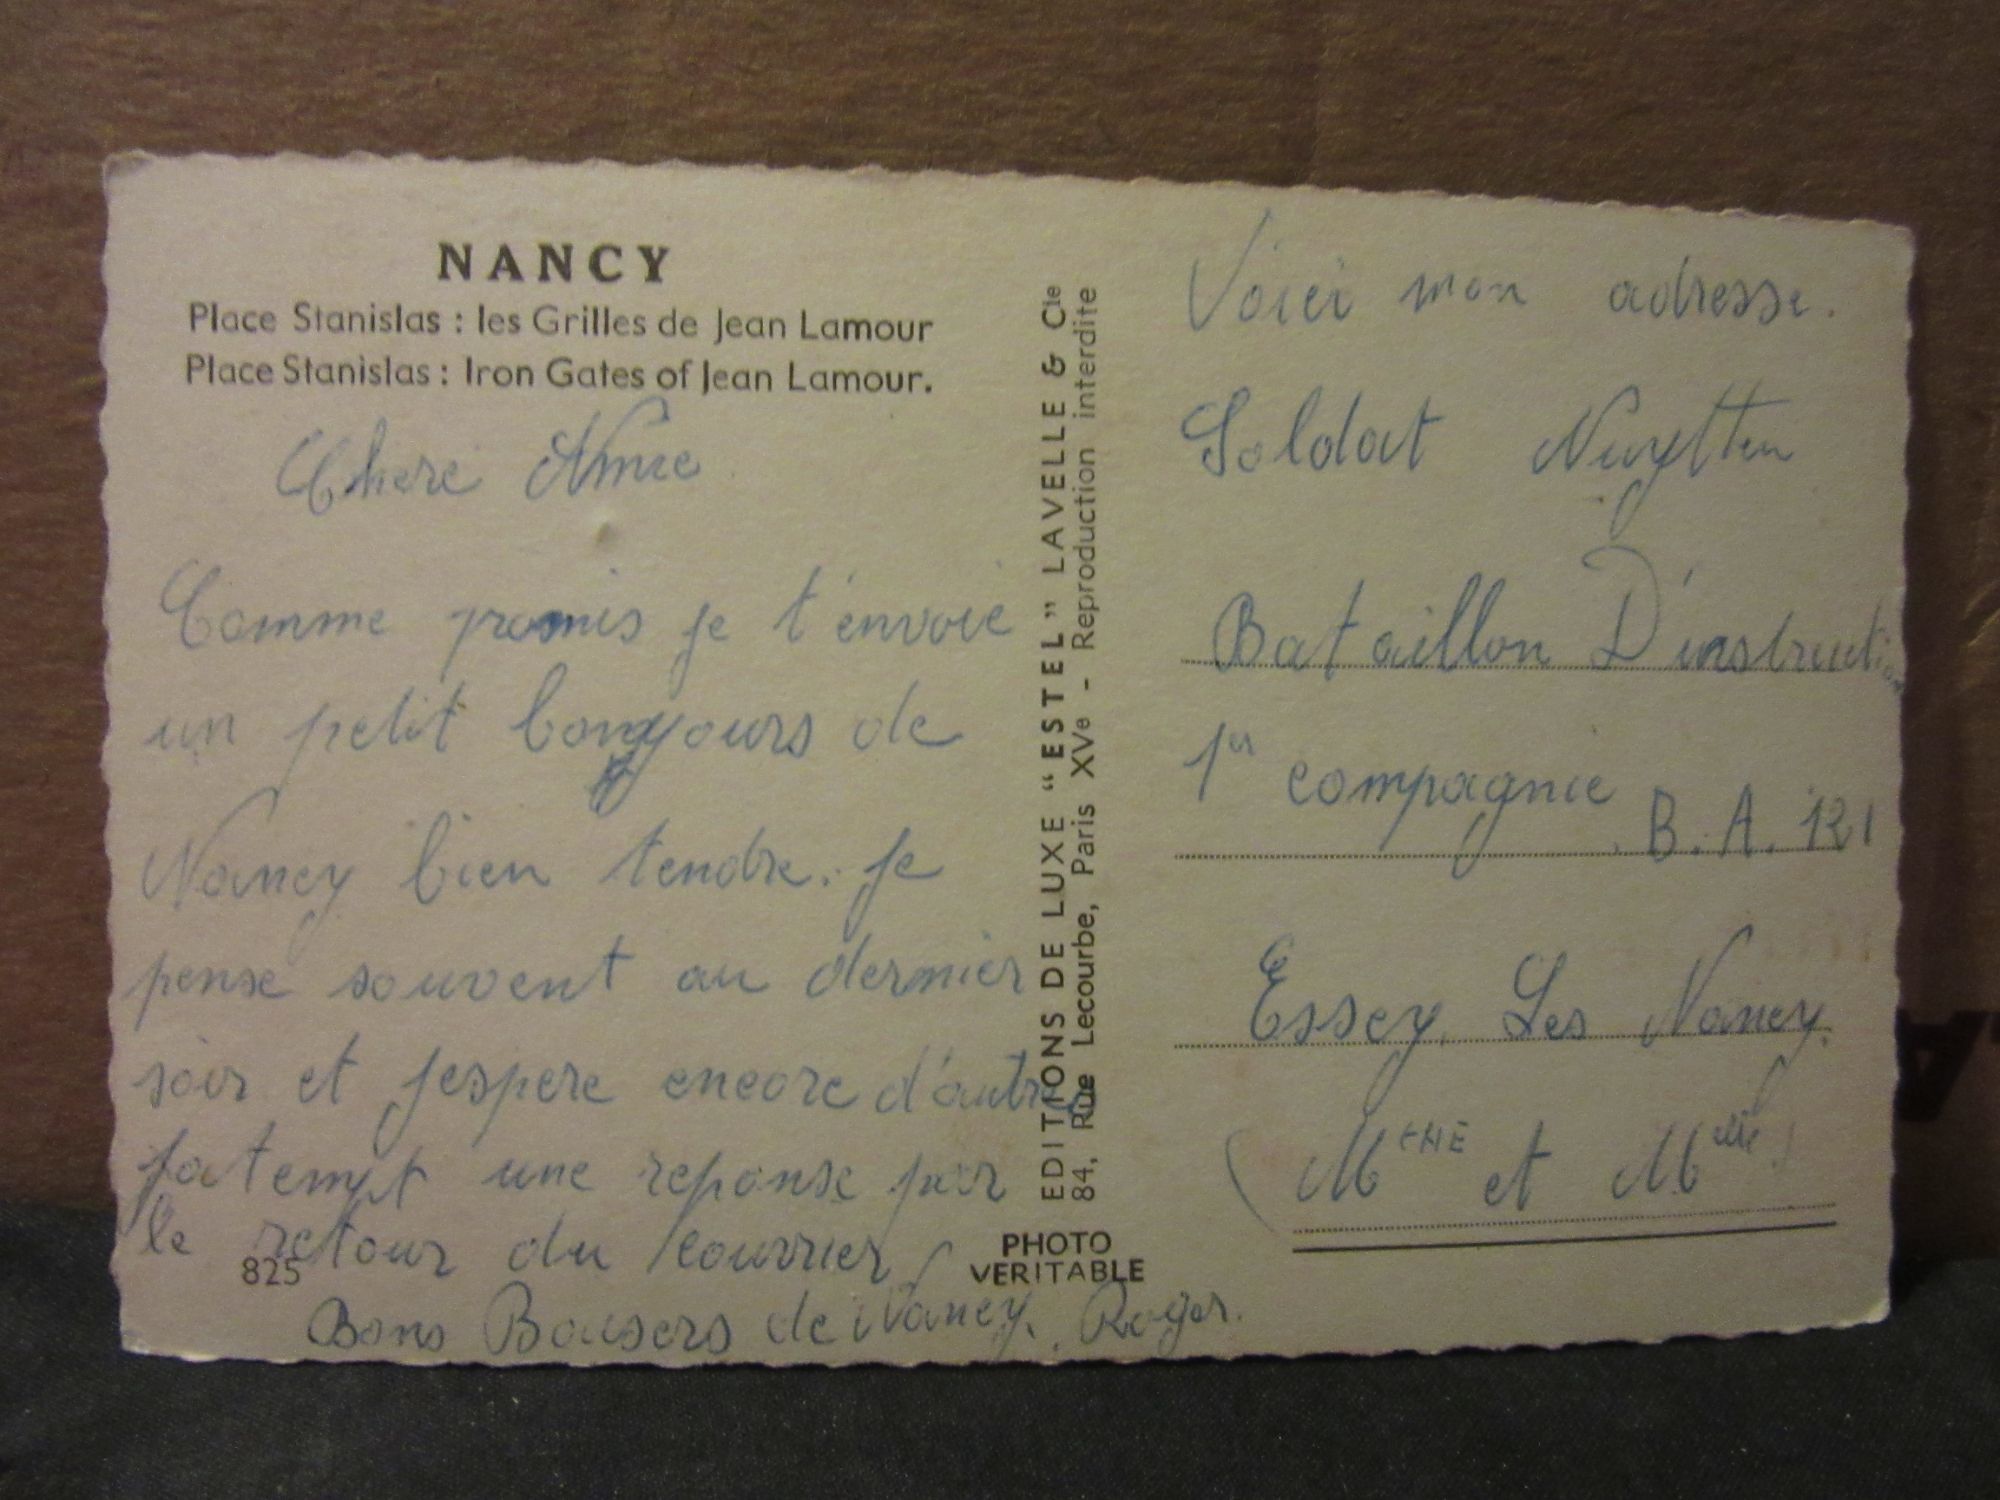 NANCY
Place Stanislas : les Grilles de Jean Lamour
Place Stanislas : Iron Gates of Jean Lamour.
Chere Amie
Comme promis je t'envoie
un petit bonjours de
Nancy bien tendre. je
pense souvent au dernier
soir et jespere encore d'autres
jatempt une reponse par
le retour du courrier
Bons Baisers de Nancy. Roger.
825
EDITIONS DE LUXE "ESTEL" LAVELLE & Cie
84, Rue Lecourbe, Paris XVe - Reproduction interdite
PHOTO
VERITABLE
Voici mon adresse.
Soldat Nuytten
Bataillon D'instruction
1er compagnie B.A. 121
Essey Les Nancy.
(MEME et Melle)